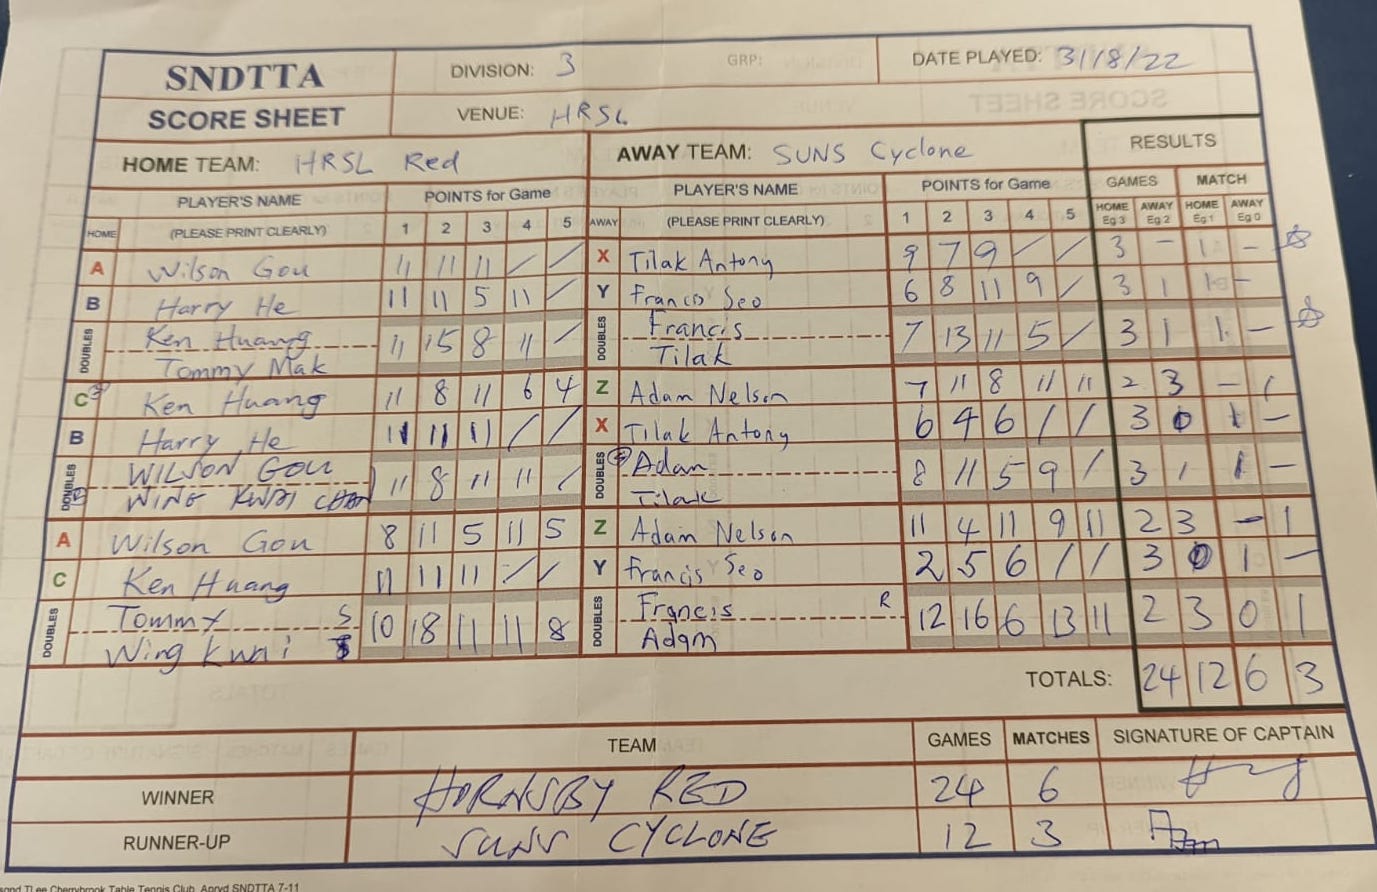 SNDTTA DIVISION: 3 GRP: DATE PLAYED: 31/8/22
SCORE SHEET VENUE: HRSL
HOME TEAM: HRSL Red AWAY TEAM: SUNS Cyclone RESULTS
PLAYER'S NAME POINTS for Game PLAYER'S NAME POINTS for Game GAMES MATCH
HOME (PLEASE PRINT CLEARLY) 1 2 3 4 5 AWAY (PLEASE PRINT CLEARLY) 1 2 3 4 5 HOME Eg 3 AWAY Eg 2 HOME Eg 1 AWAY Eg 0
A Wilson Gou 11 11 11 / / X Tilak Antony 9 7 9 / / 3 - 1 -
B Harry He 11 11 5 11 / Y Francis Seo 6 8 11 9 / 3 1 1 -
DOUBLES Ken Huang 11 15 8 11 / DOUBLES Francis 7 13 11 5 / 3 1 1 -
Tommy Mak Tilak
C Ken Huang 11 8 11 6 4 Z Adam Nelson 7 11 8 11 11 2 3 - 1
B Harry He 11 11 11 / / X Tilak Antony 6 4 6 / / 3 0 1 -
DOUBLES WILSON GOU 11 8 11 11 / DOUBLES Adam 8 11 5 9 / 3 1 1 -
WING KWAI CHAN Tilak
A Wilson Gou 8 11 5 11 5 Z Adam Nelson 11 4 11 9 11 2 3 - 1
C Ken Huang 11 11 11 / / Y Francis Seo 2 5 6 / / 3 0 1 -
DOUBLES Tommy S 10 18 11 11 8 DOUBLES Francis R 12 16 6 13 11 2 3 0 1
Wing Kwai Adam
TOTALS: 24 12 6 3
TEAM GAMES MATCHES SIGNATURE OF CAPTAIN
WINNER HORNSBY RED 24 6
RUNNER-UP SUNS CYCLONE 12 3 Adam
TLee Cherrybrook Table Tennis Club. Aprvd SNDTTA 7-11